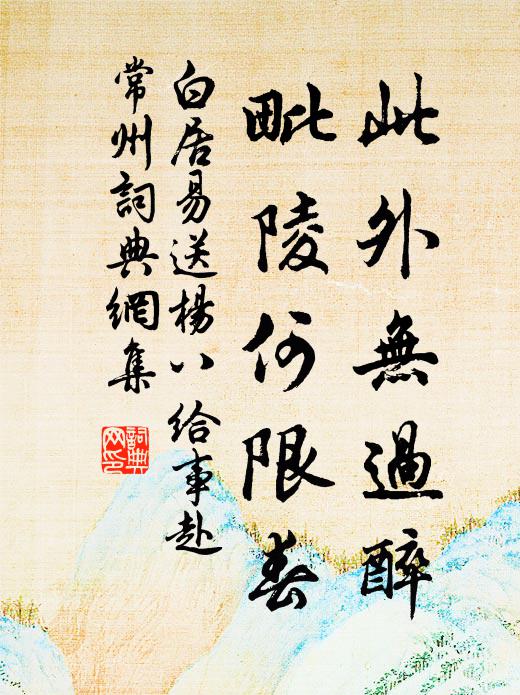 此外無過醉
毗陵何限春
白居易送楊八給事赴
常州詞典網集
詞典
网印